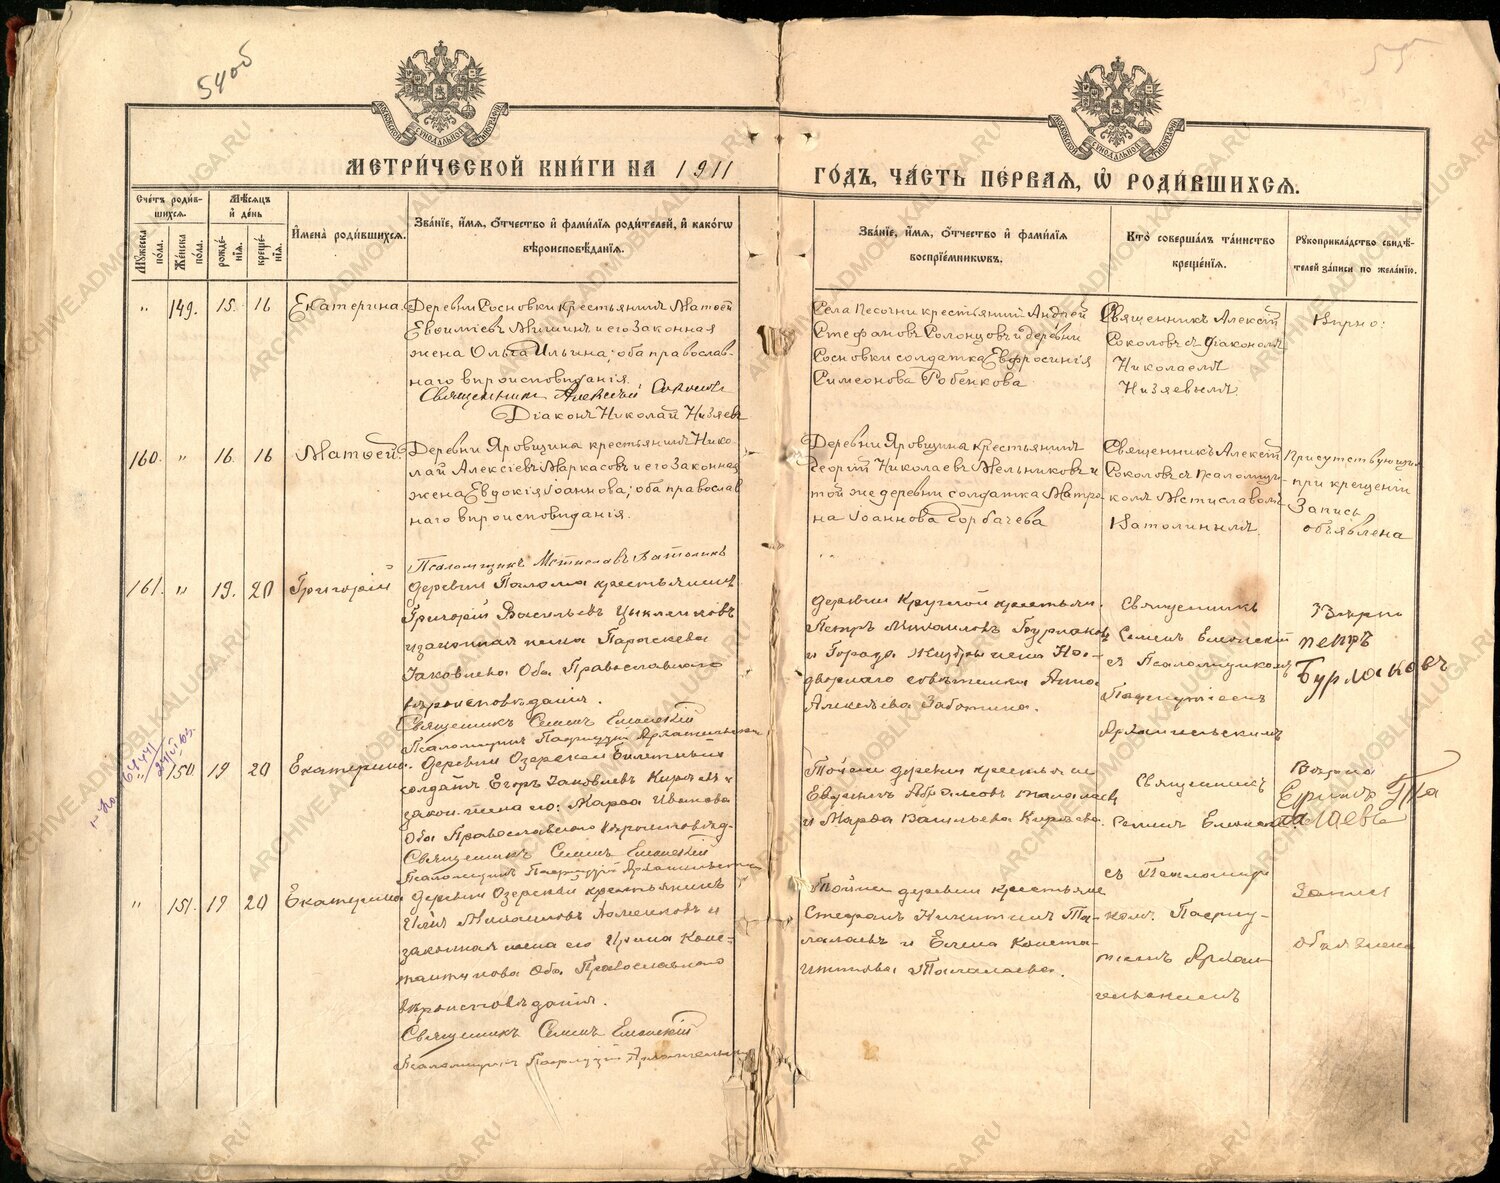 54об
МЕТРИ́ЧЕСКОЙ КНИ́ГИ НА 1911
ГО́ДЪ, ЧА́СТЬ ПЕ́РВАЯ, Ѡ РОДИ́ВШИХСЯ.
Сче́тъ роди́в-
шихся.
Мѣ́сяцъ
и́ де́нь
Му́жеска по́ла.
Же́нска по́ла.
рожде́-
нїя.
креще́-
нїя.
И́мена̀ роди́вшихся.
Зва́нїе, и́мя, ѻ́тчество и́ фами́лїя роди́телей, и́ како́гѡ
вѣроисповѣ́данїя.
Зва́нїе, и́мя, ѻ́тчество и́ фами́лїя
воспрїе́мниковъ.
Кто̀ соверша́лъ та́инство
креще́нїя.
Рукоприкла́дство свидѣ́-
телей за́писи по жела́нїю.
" 149. 15. 16 Екатерина
Деревни Сосновки крестьянинъ Матѳей
Евѳиміевъ Мишинъ и его законная
жена Ольга Ильина; оба православ-
наго вѣроисповѣданія.
Священникъ Алексѣй Соколовъ
Діаконъ Николай Низяевъ
Села Песочни крестьянинъ Андрей
Стефановъ Солонцовъ и деревни
Сосновки солдатка Евфросинія
Симеонова Бобенкова.
Священникъ Алексѣй
Соколовъ съ діакономъ
Николаемъ
Низяевымъ.
Вѣрно:
160. " 16. 16 Матѳей
Деревни Яровщина крестьянинъ Нико-
лай Алексіевъ Маркасовъ и его законная
жена Евдокія Іоаннова; оба православ
наго вѣроисповѣданія.
Псаломщикъ Мстиславъ Католинъ
Деревни Яровщина крестьянинъ
Георгій Николаевъ Мельниковъ и
той же деревни солдатка Матро
на Іоаннова Горбачева
Священникъ Алексѣй
Соколовъ съ псаломщи-
комъ Мстиславомъ
Католинымъ
Присутствующимъ
при крещеніи
Запись
объявлена
161. " 19. 20 Григорій
деревни Палома крестьянинъ
Григорій Васильевъ
и законная жена Параскева
Іаковлева Оба Православнаго
вѣроисповѣданія.
Священникъ Семенъ
Псаломщикъ Пафнутій Архангельскій
деревни Круглой крестьян.
Петръ Михаиловъ Бурлаковъ
и Города Жиздры жена На-
дворнаго совѣтника Анна
Алексѣева Заботина.
Священникъ
Семенъ
съ Псаломщикомъ
Пафнутіемъ
Архангельскимъ
Вѣрно
петръ
Бурлаковъ
" 150 19 20 Екатерина
деревни Озерской
солдатъ Егоръ Іаковлевъ
закон. жена его: Марѳа Иванова
Оба Православнаго вѣроисповѣд-
Священникъ Семенъ
Псаломщикъ Пафнутій Архангельскій
Той же деревни крестьяне
и Марѳа Васильева
Священникъ
Семенъ
Вѣрно
" 151. 19 20 Екатерина
деревни Озерской крестьянинъ
Михаиловъ и
законная жена его Ирина Конс-
тантинова Оба Православнаго
вѣроисповѣданія.
Священникъ Семенъ
Псаломщикъ Пафнутій Архангельскій
Той же деревни крестьяне
Стефанъ Никитинъ Та-
лалаевъ и Елена Конста-
нтинова Талалаева.
съ Псаломщи
комъ Пафну-
тіемъ Архан-
гельскимъ
Запись
объявлена
ARCHIVE.ADMOBLKALUGA.RU